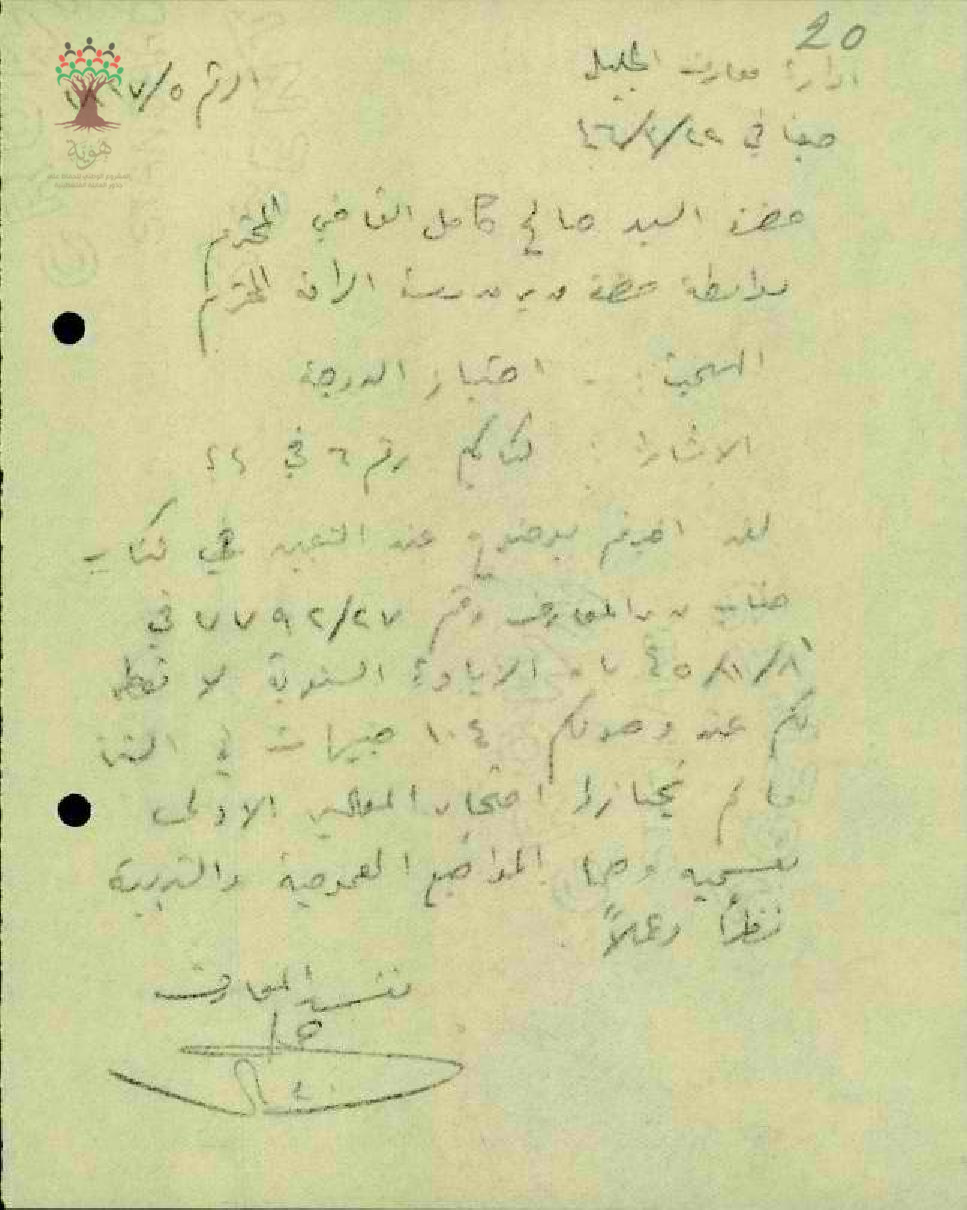 20
ادارة معارف الجليل
الرقم ٧/٥
صفد في ٤٦/٤/٢٩
هوية
حضرة السيد صالح كامل القاضي المحترم
بواسطة حضرة مدير مدرسة الرامة المحترم
المبحث : - اختبار الدرجة
الاشارة : لكتابكم رقم ٦ في
لقد اخبرتم بوضوح عند التعيين في كتاب
جناب مدير المعارف رقم ٧٧٩٢/٢٧ في
بان الزيادة السنوية لا تعطى
لكم عند وصولكم ١٠٤ جنيهات في السنة
ما لم تجتازوا امتحان المعلمين الاولى
بقسميه وهما المواضيع العمومية والتربية
نظراً وعملاً .
مفتش المعارف